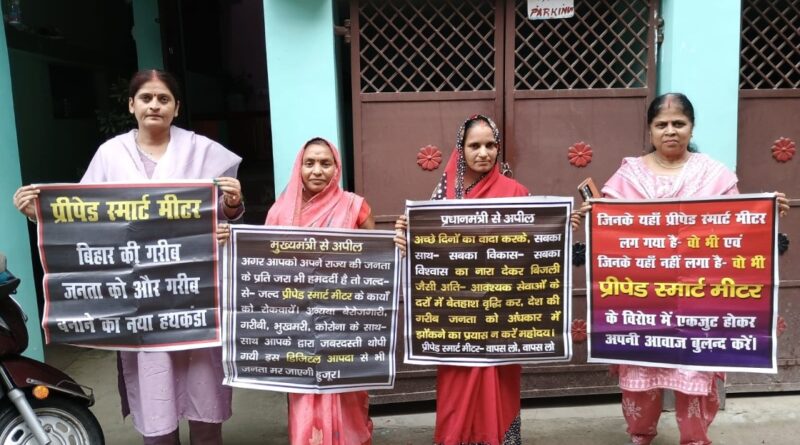 PARKING
प्रीपेड स्मार्ट मीटर
बिहार की गरीब
जनता को और गरीब
बनाने का नया हथकंडा
मुख्यमंत्री से अपील
अगर आपको अपने राज्य की जनता
के प्रति जरा भी हमदर्दी है तो जल्द-
से- जल्द प्रीपेड स्मार्ट मीटर के कार्यो
को रोकवायें। अन्यथा बेरोजगारी,
गरीबी, भुखमरी, कोरोना के साथ-
साथ आपके द्वारा जबरदस्ती थोपी
गयी इस डिजिटल आपदा से भी
जनता मर जाएगी हुजूर।
प्रधानमंत्री से अपील
अच्छे दिनों का वादा करके, सबका
साथ- सबका विकास- सबका
विश्वास का नारा देकर बिजली
जैसी अति- आवश्यक सेवाओं के
दरों में बेतहाशा वृद्धि कर, देश की
गरीब जनता को अंधकार में
झोंकने का प्रयास न करें महोदय।
प्रीपेड स्मार्ट मीटर- वापस लो, वापस लो
जिनके यहाँ प्रीपेड स्मार्ट मीटर
लग गया है- वो भी एवं
जिनके यहाँ नहीं लगा है- वो भी
प्रीपेड स्मार्ट मीटर
के विरोध में एकजुट होकर
अपनी आवाज बुलन्द करें।